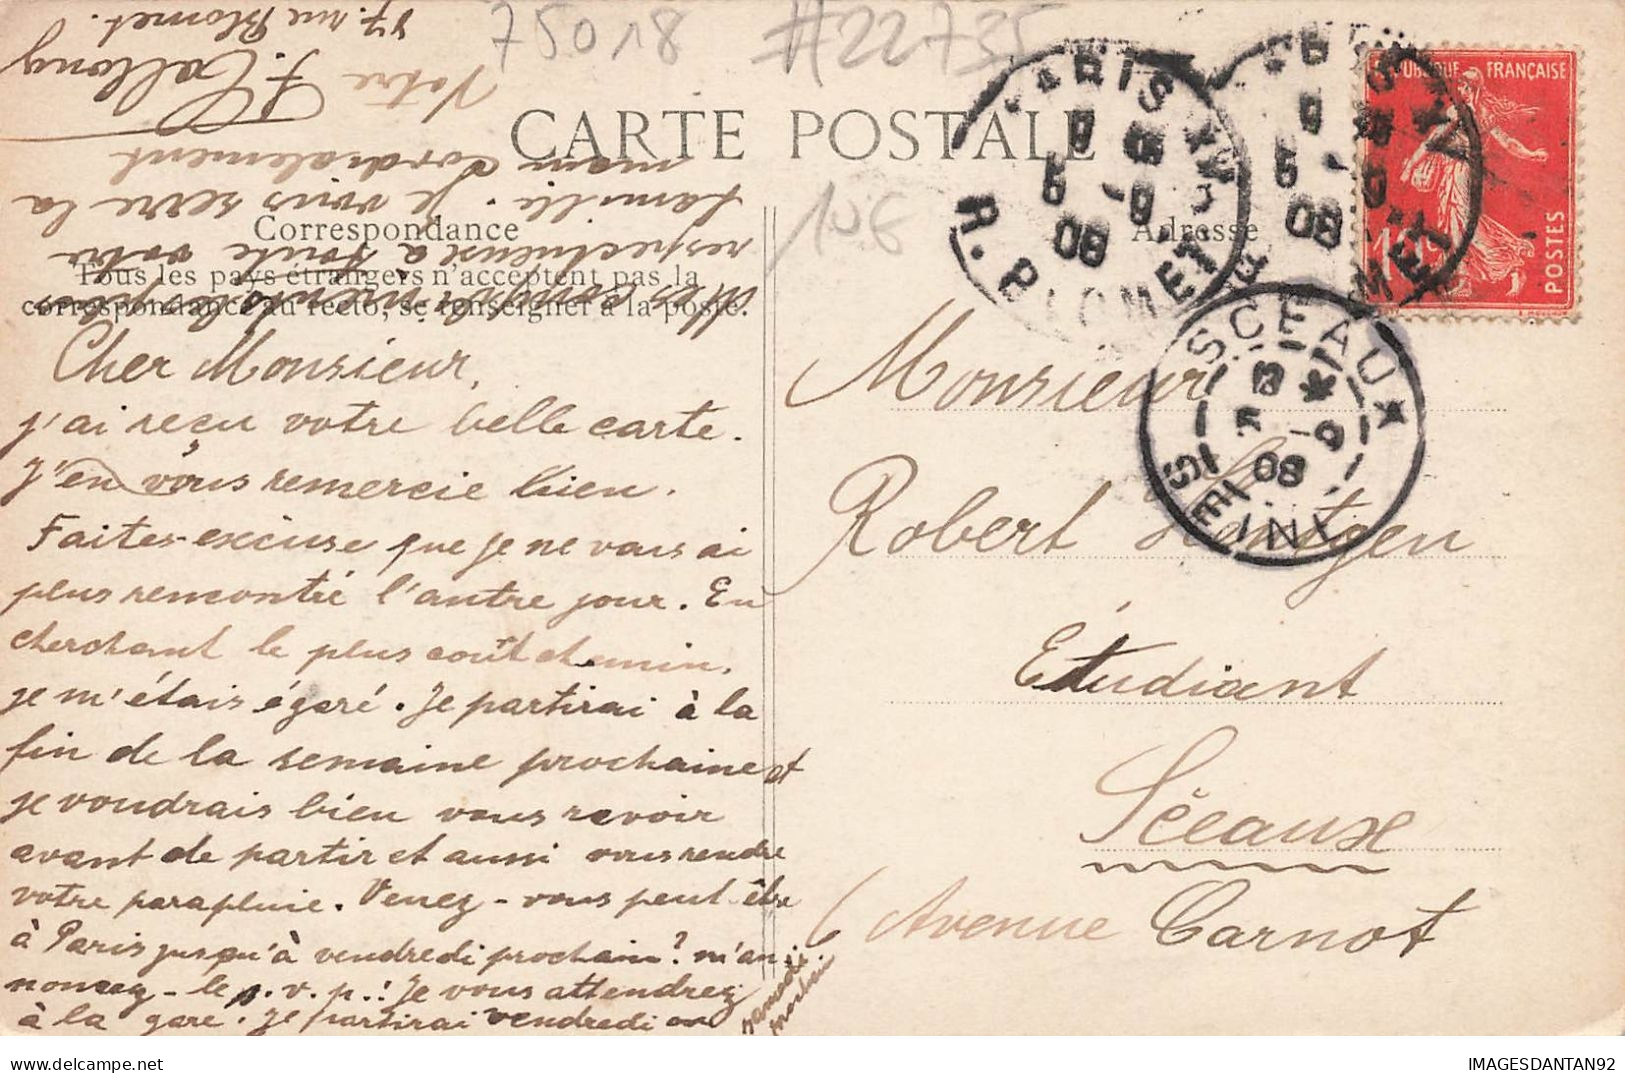 75018 #22735
CARTE POSTALE
10E
Correspondance
Adresse
Tous les pays étrangers n'acceptent pas la
correspondance au recto, se renseigner à la poste.
RÉPUBLIQUE FRANÇAISE
POSTES
PARIS XV
R. BLOMET
08
SCEAUX
SEINE
08
Cher Monsieur,
j'ai reçu votre belle carte.
J'en vous remercie bien.
Faites-excuse que je ne vous ai
plus rencontré l'autre jour. En
cherchant le plus court chemin,
je m'étais égaré. Je partirai à la
fin de la semaine prochaine et
je voudrais bien vous revoir
avant de partir et aussi vous rendre
votre parapluie. Venez-vous peut être
à Paris jusqu'à vendredi prochain? m'an
noncez-le s.v.p.! Je vous attendrez
à la gare. Je partirai vendredi ou
samedi
matin
Mes compliments
respectueuse à toute votre
famille. Je vous serre la
main cordialement
Votre
J. Callong
87. rue Blomet.
Monsieur
Robert Hentgen
Étudiant
Sceaux
6 Avenue Carnot
IMAGESDANTAN92